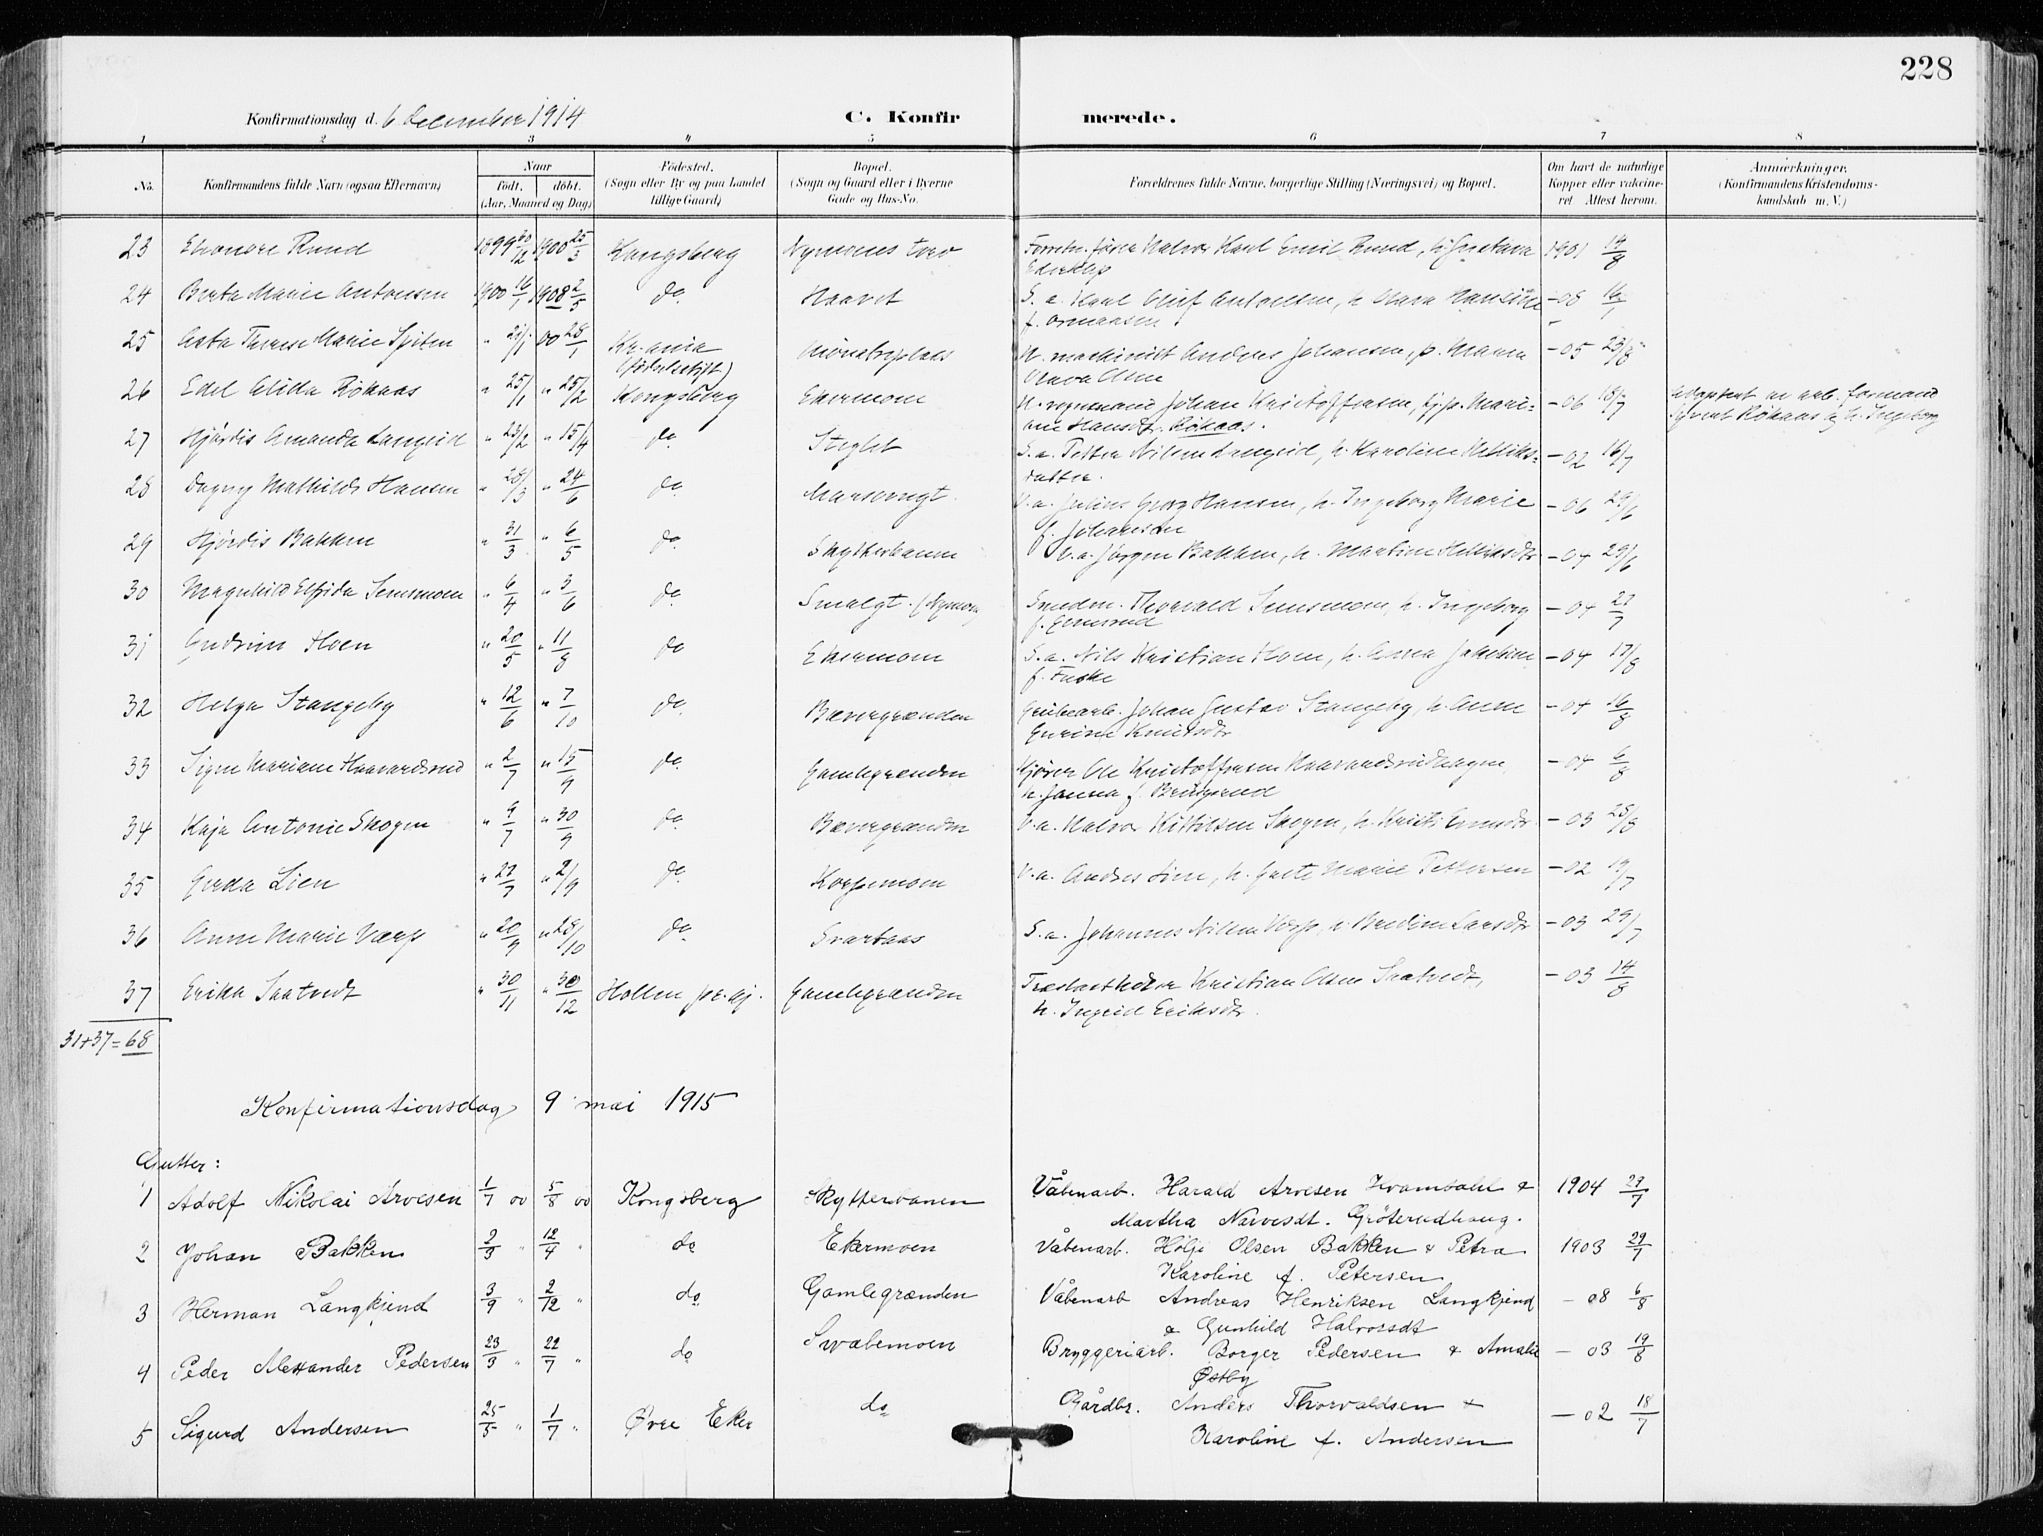 228
Konfirmationsdag d. 6 december 1914
C. Konfirmerede.
1 2 3 4 5 6 7 8
No. Konfirmandens fulde Navn (ogsaa Efternavn) Naar født. døbt. (Aar, Maaned og Dag) Fødested. (Sogn eller By og paa Landet tillige Gaard) Bopæl. (Sogn og Gaard eller i Byerne Gade og Hus-No. Forældrenes fulde Navne, borgerlige Stilling (Næringsvei) og Bopæl. Om havt de naturlige Kopper eller vakcineret. Attest herom. Anmærkninger. (Konfirmandens Kristendomskundskab m. V.)
23 Eleonore Ruud 1899 30/12 1900 25/3 Kongsberg Nymoens torv Halvor Karl Emil Ruud, h. Gustava 1901 14/8
24 Berta Marie Antonsen 1900 16/1 1908 2/5 do Haavet S. a. Karl Oluf Antonsen, h. - 08 16/1
25 Asta Therese Marie Spiten " 21/1 00 28/1 Kr.ania (fødselsstift) M. machinist Anders Johansen, p. Maria - 05 23/8
26 Edel Alida Røkaas " 25/1 " 25/2 Kongsberg Ekermoen Johan Kristoffersen, Hansdt. Røkaas. - 06 18/7 Adoptert av arb. formand Røkaas og h. Ingeborg
27 Hjørdis Amanda Langeid " 23/2 " 15/4 do Steglet S. a. Petter Nilsen Langeid, h. Karoline Kittilsdatter. - 02 16/7
28 Dagny Mathilde Hansen " 28/3 " 24/6 do V. a. Julius Georg Hansen, h. Ingeborg Marie f. Johansen - 06 29/6
29 Hjørdis Bakken " 31/3 " 6/5 do Skytterbanen V. a. Jørgen Bakken, h. Martine - 04 29/6
30 Magnhild Elfrida Semsmoen " 6/4 " 3/6 do Smalgt. (Nymoen) Smedm. Thorvald Semsmoen, h. Ingeborg - 04 21/7
31 Gudrun Hoen " 20/5 " 11/8 do Ekermoen S. a. Nils Kristian Hoen, h. Anna - 04 17/8
32 Helga Stangeby " 12/6 " 7/10 do Bævergrænden Grubearb. Johan Gustav Stangeby, h. Anne Gurine Knutsdt. - 04 16/8
33 Signe Mariane Haavardsrud " 2/7 " 15/9 do Gamlegrænden Kjører Ole Kristoffersen Haavardsrudhagen, h. Janna f. - 04 6/8
34 Kaja Antonie Skogen " 9/7 " 30/9 do Bævergrænden V. a. Halvor Kittilsen Skogen, h. - 03 25/8
35 Gerda Lien " 22/7 " 2/9 do Korpemoen V. a. Andres Lien, h. Grete Marie Pettersen - 02 19/7
36 Anne Marie Værp " 20/9 " 28/10 do Svartaas S. a. Johannes Nilsen Værp, h. Bredine Larsdt. - 03 29/7
37 Erika Saatvedt " 30/11 " 30/12 Hollen pr.gj. Gamlegrænden Kristian Olsen Saatvedt, h. Ingrid Eriksdt. - 03 14/8
31+37=68
Konfirmationsdag 9 mai 1915
Gutter:
1 Adolf Nikolai Arvesen 1/7 00 5/8 00 Kongsberg Skyttervanen Våbenarb. Harald Arvesen Kvambald & 1904 27/7
Martha Narvesdt. Grøterudhaug.
2 Johan Bakken 2/3 " 12/4 " do Ekermoen Våbenarb. Hølje Olsen Bakken & Petra 1903 29/7
Karoline f. Petersen
3 Herman Langkjend 3/9 " 2/12 " do Gamlegrænden Våbenarb Andreas Henriksen Langkjend - 08 6/8
& Gunhild Halvorsdt
4 Peder Alexander Pedersen 23/3 " 22/7 " do Svabemoen Bryggeriarb. Borger Pedersen & Amalie - 03 19/8
Østby
5 Sigurd Andersen 25/5 " 1/7 " Øvre Eker do Gårdbr. Anders Thorvaldsen & - 02 18/7
Karoline f. Andersen